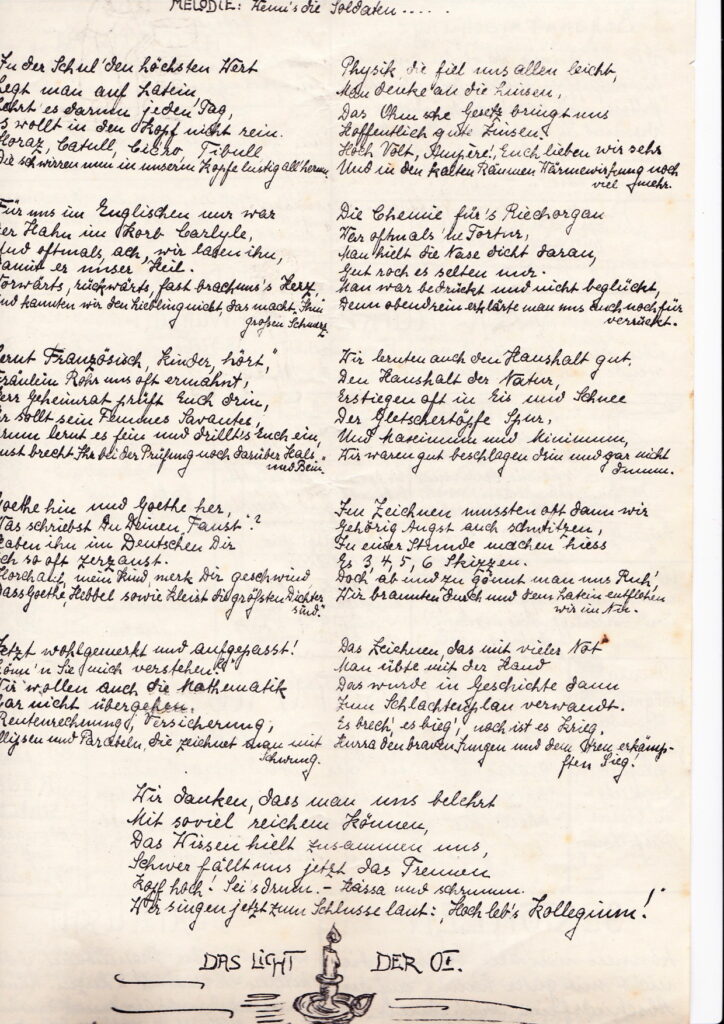 MELODIE: Wenn's die Soldaten.....
In der Schul' den höchsten Wert
legt man auf Latein,
Lehrt es darum jeden Tag,
s wollt in den Kopf nicht rein.
Horaz, Catull, Cicero, Tibull,
Die schwirren nun in unserm Kopfe lustig all' herum.
Für uns im Englischen nur war
er Hahn im Korb Carlyle,
Und oftmals, ach, wir lasen ihn,
damit er unser Heil.
Vorwärts, rückwärts, fast brach uns's Herz,
und kannten wir den Liebling nicht, das macht' Ihm
großen Schmerz.
Lernt Französisch, Kinder, hört,"
Fräulein Rohr uns oft ermahnt,
Herr Geheimrat prüft Euch drin,
Ihr sollt sein Femmes Savantes,
arum lernt es fein und drillt's Euch ein,
sonst brecht Ihr bei der Prüfung noch darüber Hals
und Bein."
Goethe hin und Goethe her,
Was schriebst Du Deinen „Faust"?
Haben ihn im Deutschen Dir
ch so oft zerzaust.
Horch auf, mein Kind, merk Dir geschwind,
Dass Goethe, Hebbel sowie Kleist die größten Dichter
sind."
Jetzt wohlgemerkt und aufgepasst!
Könn'n Sie mich verstehen?"
Wir wollen auch die Mathematik
Gar nicht übergehen.
Rentenrechnung, Versicherung,
llipsen und Parabeln, die zeichnet man mit
Schwung.
Physik die fiel uns allen leicht,
Man denke an die Linsen,
Das Ohmsche Gesetz bringt uns
Hoffentlich gute Zinsen.
Hoch Volt, Ampère!, Euch lieben wir sehr
Und in den kalten Räumen Wärmewirkung noch
viel mehr.
Die Chemie für's Riechorgan
War oftmals 'ne Tortur,
Man hielt die Nase dicht daran,
Gut roch es selten nur.
Man war bedrückt und nicht beglückt,
Denn obendrein erklärte man uns auch noch für
verrückt.
Wir lernten auch den Haushalt gut,
Den Haushalt der Natur,
Erstiegen oft in Eis und Schnee
Der Gletschertöpfe Spur,
Und Maximum und Minimum,
Wir waren gut beschlagen drin und gar nicht
dumm.
Im Zeichnen mussten oft dann wir
Gehörig Angst auch schwitzen,
„In einer Stunde machen" hiess
Es 3, 4, 5, 6 Skizzen.
Doch ab und zu gönnt man uns Ruh',
Wir brannten durch und dem Latein entflohen
wir im Nu.
Das Zeichnen, das mit vieler Not
Man übte mit der Hand
Das wurde in Geschichte dann
Zum Schlachtenplan verwandt.
Es brech', es bieg', noch ist es Krieg.
Hurra den braven Jungen und dem erkämp-
ften Sieg.
Wir danken, dass man uns belehrt
Mit soviel reichem Können,
Das Wissen hielt zusammen uns,
Schwer fällt uns jetzt das Trennen
Kopf hoch! Sei's drum. – Kassa und schrumm.
Wir singen jetzt zum Schlusse laut: „Hoch leb's Kollegium!"
DAS LICHT DER OI.